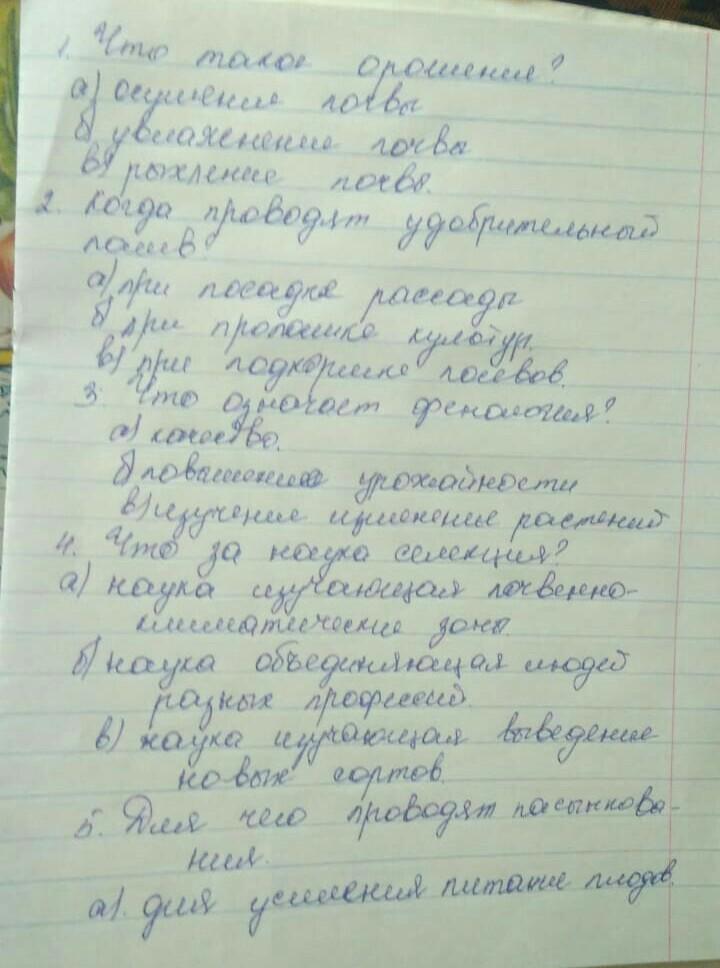 1. Что такое орошение?
а) осушение почвы
б) увлажнение почвы
в) рыхление почвы.
2. Когда проводят удобрительный
полив
а) при посадке рассады
б) при прополке культур.
в) при подкормке посевов.
3. Что означает фенология?
а) качество.
б) повышение урожайности
в) изучение изменение растений
4. Что за наука селекция?
а) наука изучающая почвенно-
климатические зоны.
б) наука объединяющая людей
разных профессий.
в) наука изучающая выведение
новых сортов.
5. Для чего проводят пасынкова-
ния.
а). для усиления питание плодов.